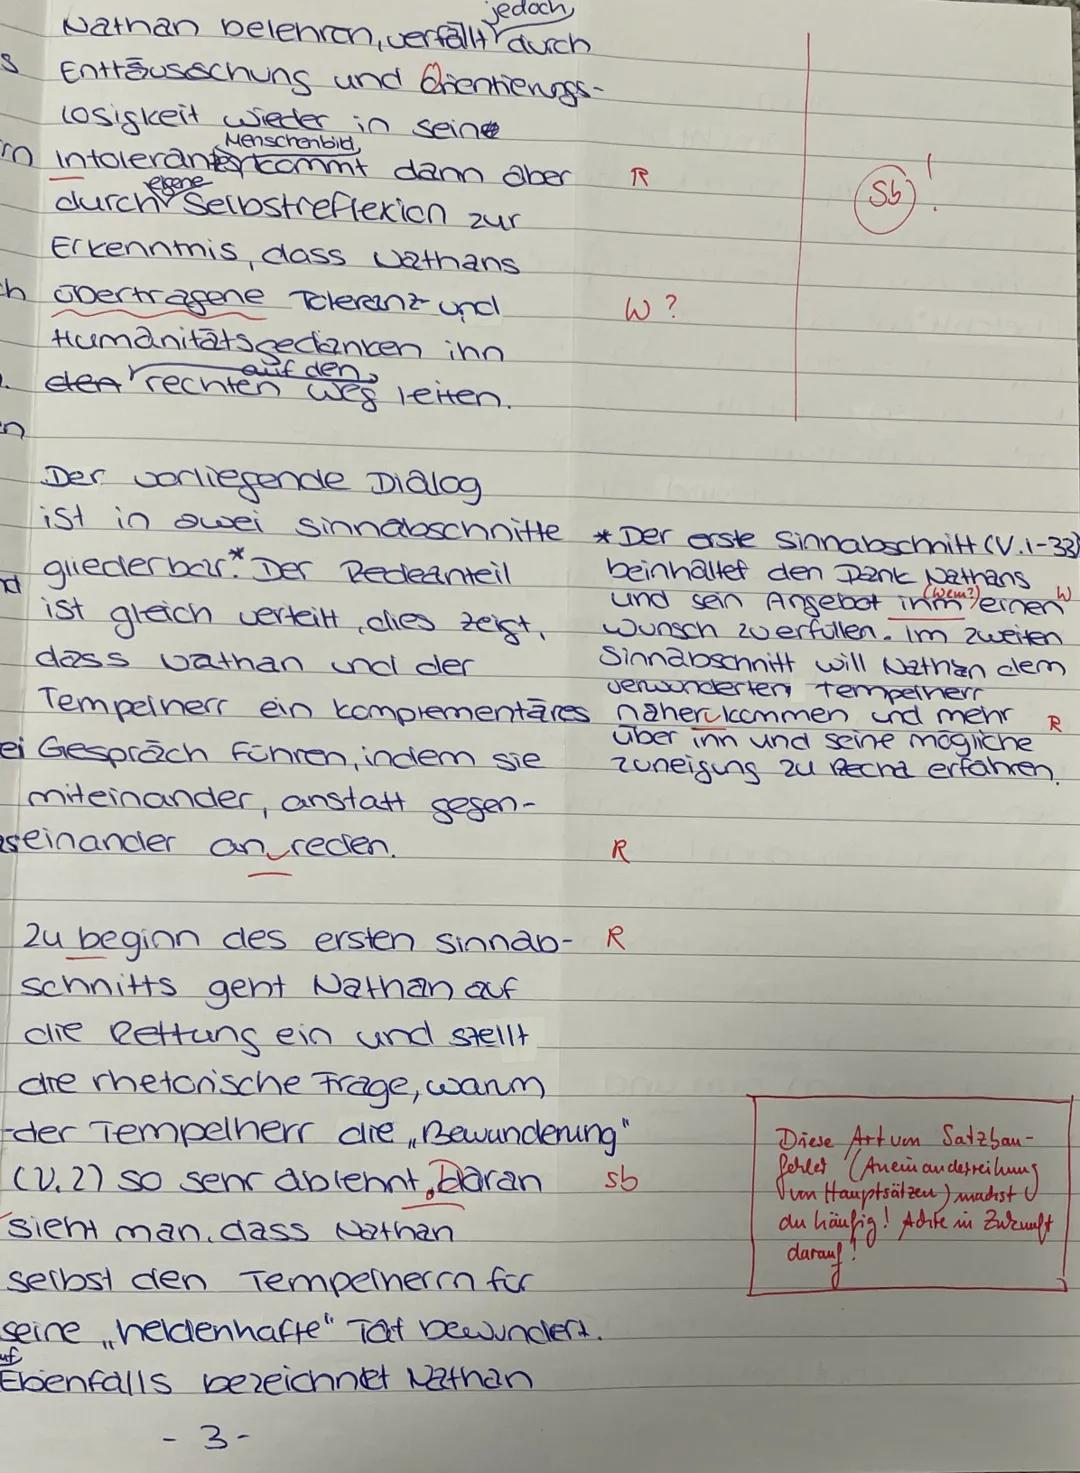 jedoch,
Nathan belehren, verfällt durch
s Enttäusschung und Orientierungs-
losigkeit wieder in sein
Menschenbild,
intolerantes kommt dann aber R
eigene
durch Selbstreflexion zur
Sb !
Erkenntnis, dass Nathans
ch übertragene Toleranz und W ?
Humanitätsgedanken ihn
auf den
den rechten Weg leiten.
n
Der vorliegende Dialog
ist in zwei Sinnabschnitte
gliederbar.* Der Redeanteil
ist gleich verteilt, dies zeigt,
dass Nathan und der
Tempelherr ein komplementäres
ei Gespräch führen, indem sie
miteinander, anstatt gegen-
einander an reden. R
* Der erste Sinnabschnitt (V.1-33)
beinhaltet den Dank Nathans
(wem?) W
und sein Angebot ihm einen
Wunsch zu erfüllen. Im zweiten
Sinnabschnitt will Nathan dem
verwunderten Tempelherr
näher kommen und mehr R
über ihn und seine mögliche
Zuneigung zu Recha erfahren.
Zu beginn des ersten Sinnab- R
schnitts geht Nathan auf
die Rettung ein und stellt
die rhetorische Frage, warum
der Tempelherr die „Bewunderung"
(V.2) so sehr ablehnt. Daran sb
sieht man, dass Nathan
selbst den Tempelherrn für
seine „heldenhafte" Tat bewundert.
Ebenfalls bezeichnet Nathan
Diese Art von Satzbau-
fehler (Aneinanderreihung
von Hauptsätzen) machst
du häufig! Achte in Zukunft
darauf!
- 3 -